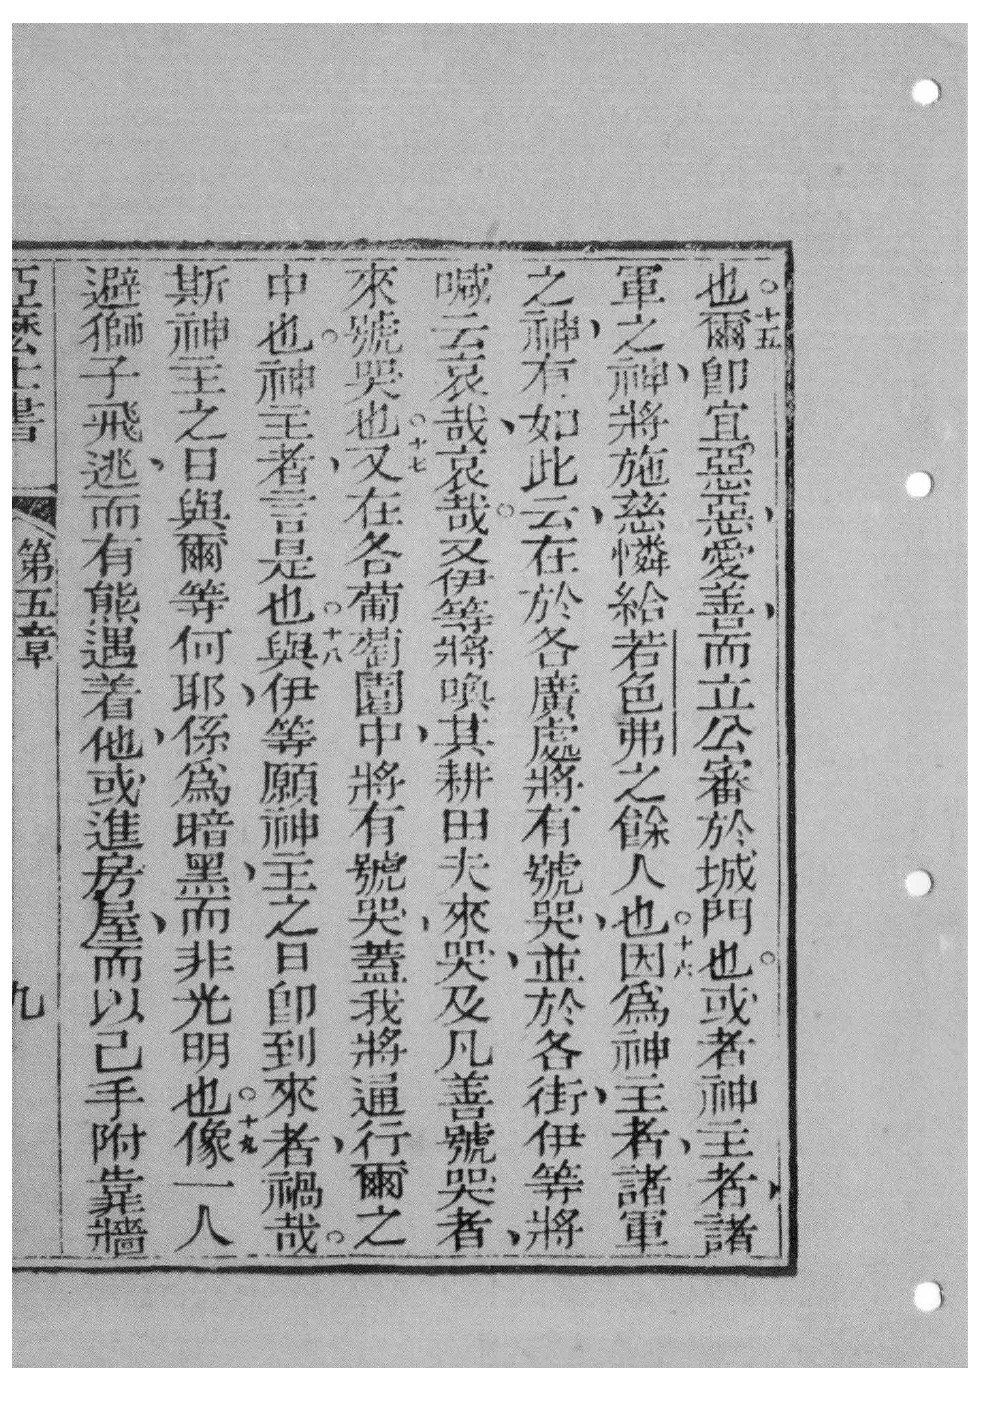 也○十五爾卽宜惡惡、愛善、而立公審於城門也。或者神主者、諸
軍之神、將施慈憐給若色弗之餘人也○十六因爲神主者、諸軍
之神、有如此云、在於各廣處將有號哭、並於各街、伊等將
喊云哀哉、哀哉。又伊等將喚其耕田夫來哭、及凡善號哭者、
來號哭也○十七又在各葡萄園中、將有號哭、蓋我將通行爾之
中也。神主者、言是也○十八與伊等願神主之日卽到來者、禍哉。
斯神主之日與爾等何耶、係爲暗黑、而非光明也○十九像一人
避獅子飛逃、而有熊遇着他、或進房屋、而以己手附靠牆
亞麽士書 第五章 九